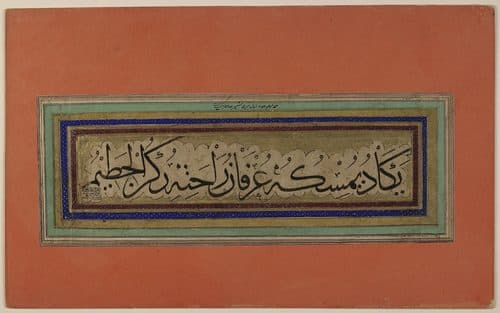 يَكَادُ يُمْسِكُهُ عِرْفَانَ رَاحَتِهِ رُكْنُ الْحَطِيْمِ